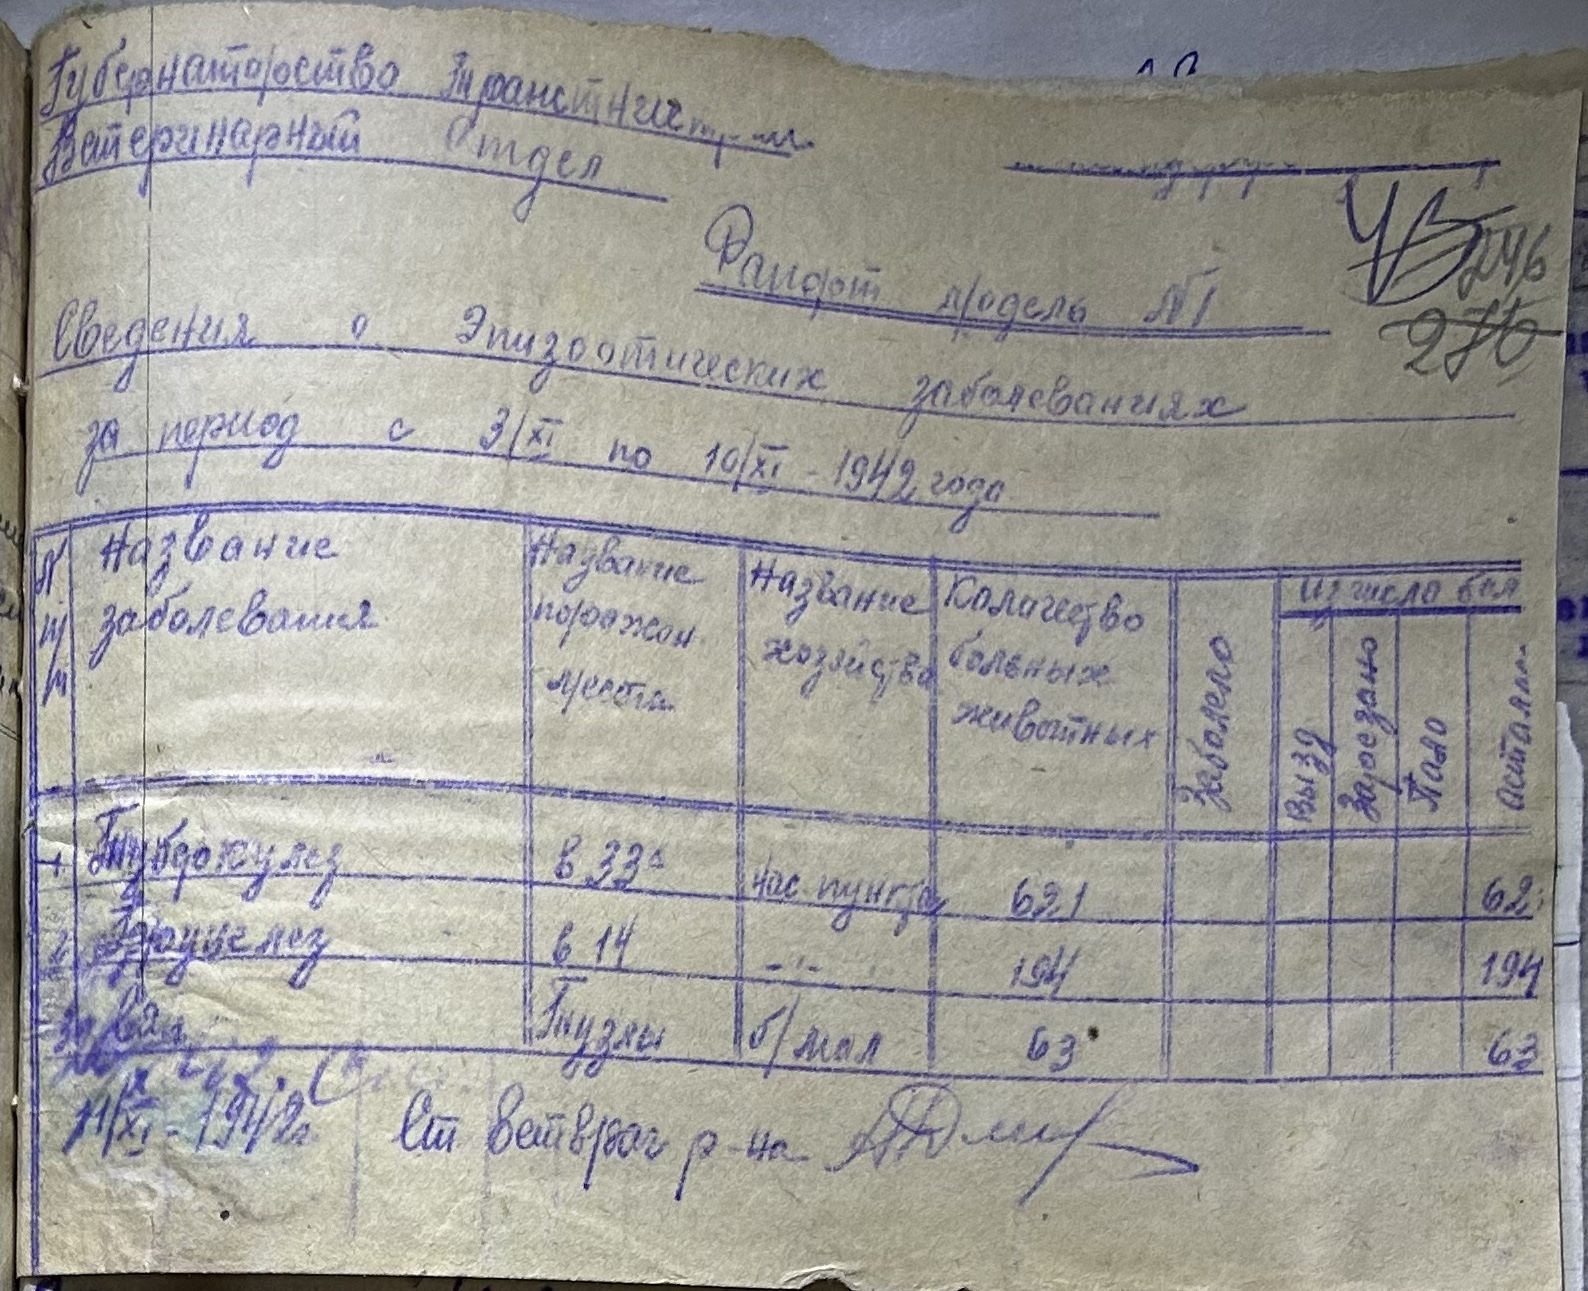 Губернаторство Транснистрии
Ветеринарный Отдел
Рапорт модель №1
ЧВ 246
276
Сведения о Эпизоотических заболеваниях
за период с 3/XI по 10/XI - 1942 года
№ п/п
Название заболевания
Название поражен. места
Название хозяйства
Количество больных животных
Заболело
из числа бол
Вызд
Зарезано
Пало
астали
1 Туберкулез в 33х нас. пункта 621 621
2 Бруцелез в 14 -"- 194 194
3 Тузлы б/мал 63 63
11/XI - 1942 г. Ст ветврач р-на